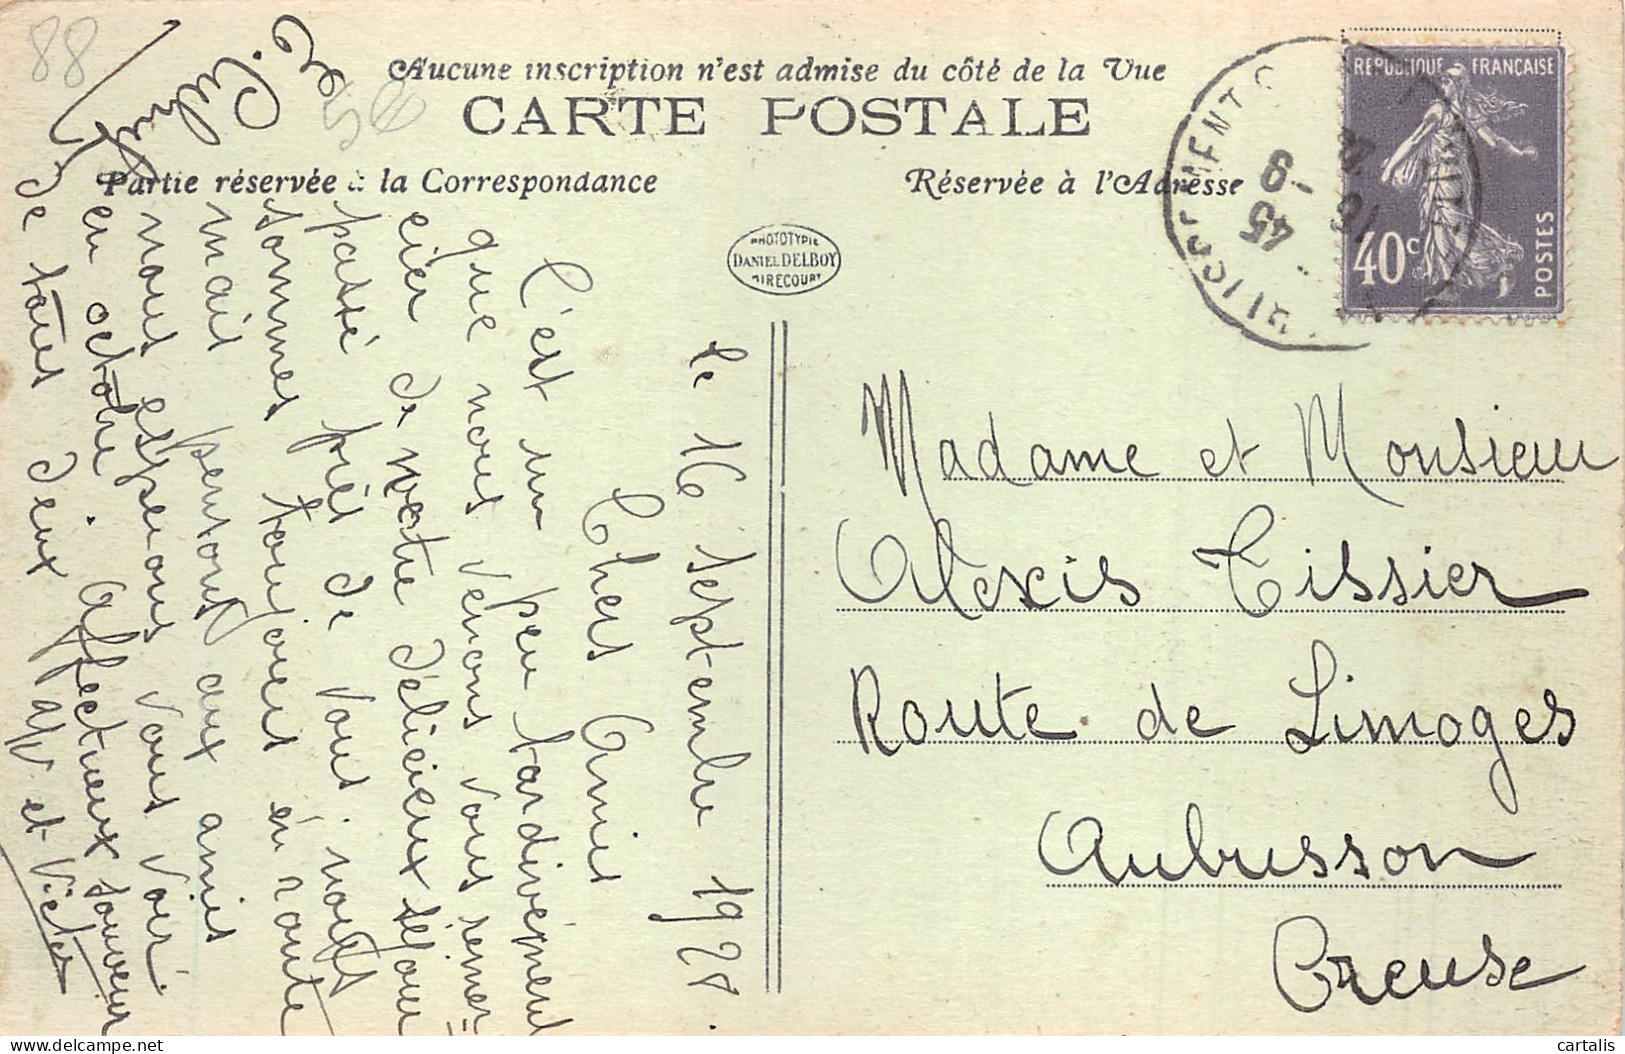 88
Aucune inscription n'est admise du côté de la Vue
CARTE POSTALE
Partie réservée à la Correspondance
Réservée à l'Adresse
REPUBLIQUE FRANÇAISE
40c
POSTES
PHOTOTYPIE
DANIEL DELBOY
MIRECOURT
le 16 septembre 1928.
Chers Amis
C'est un peu tardivement
que nous venons vous remer=
cier de notre délicieux séjour
passé près de vous. nous
sommes toujours en route
mais pensons aux amis
nous espérons vous voir
en octobre. Affectueux souvenir
de tous deux
et Victor
Madame et Monsieur
Alexis Tissier
Route de Limoges
Aubusson
Creuse
cartalis
delcampe.net